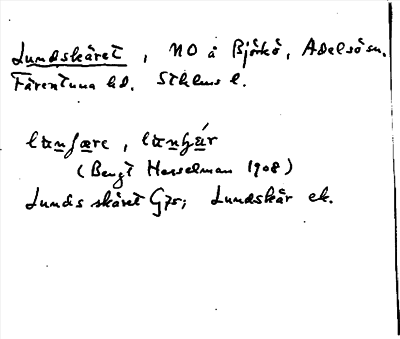 Lundskäret, NO å Björkö, Adelsö sn.
Färentuna hd. Sthlms l.
(Bengt Hesselman 1908)
Lunds skäret G75; Lundskär ek.